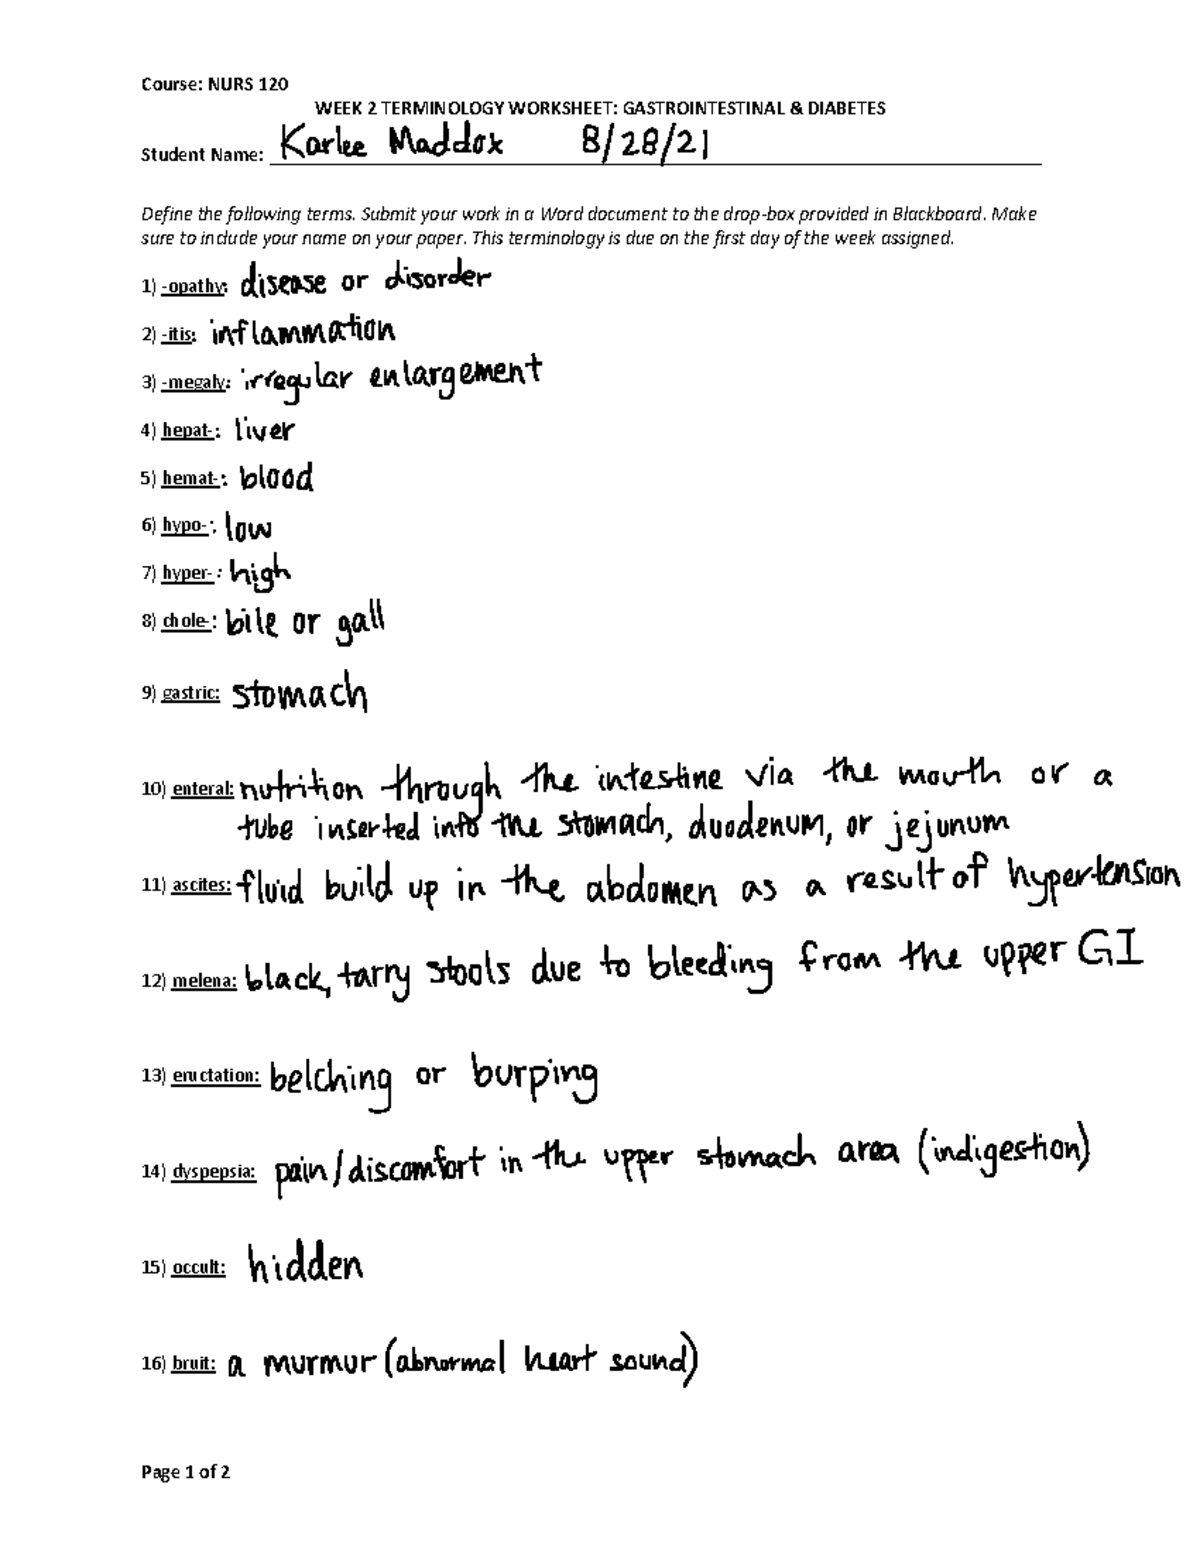 Course: NURS 120
WEEK 2 TERMINOLOGY WORKSHEET: GASTROINTESTINAL & DIABETES
Student Name: Karlee Maddox 8/28/21
Define the following terms. Submit your work in a Word document to the drop-box provided in Blackboard. Make
sure to include your name on your paper. This terminology is due on the first day of the week assigned.
1) -opathy: disease or disorder
2) -itis: inflammation
3) -megaly: irregular enlargement
4) hepat-: liver
5) hemat-: blood
6) hypo-: low
7) hyper- : high
8) chole-: bile or gall
9) gastric: stomach
10) enteral: nutrition through the intestine via the mouth or a
tube inserted into the stomach, duodenum, or jejunum
11) ascites: fluid build up in the abdomen as a result of hypertension
12) melena: black, tarry stools due to bleeding from the upper GI
13) eructation: belching or burping
14) dyspepsia: pain/discomfort in the upper stomach area (indigestion)
15) occult: hidden
16) bruit: a murmur (abnormal heart sound)
Page 1 of 2